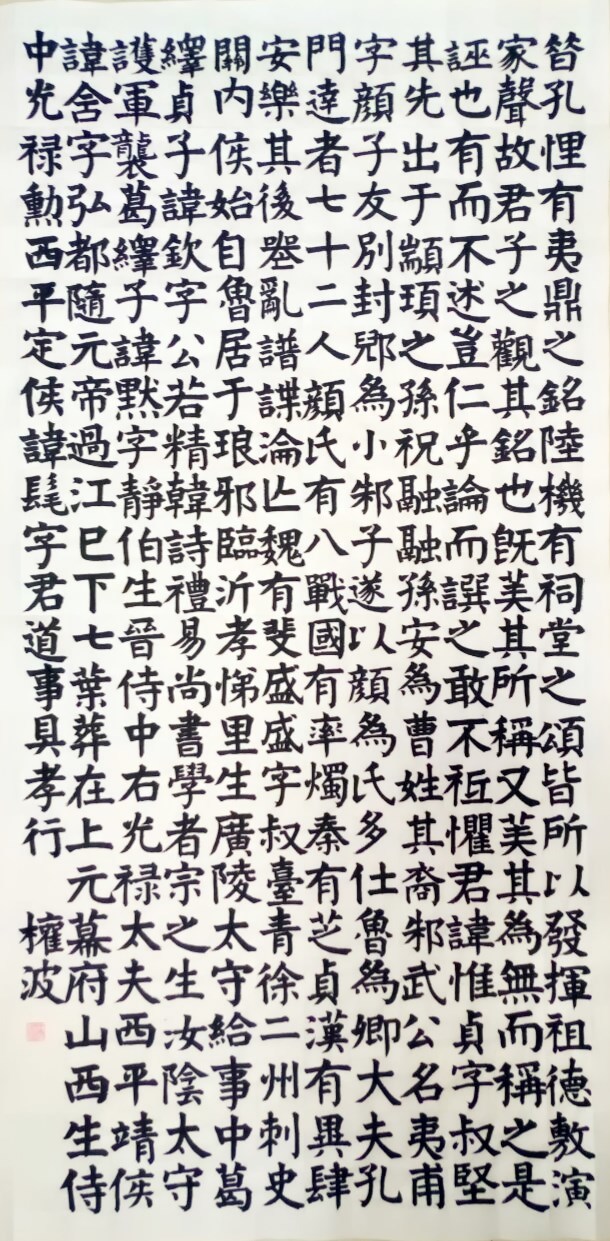 昔孔悝有夷鼎之銘陸機有祠堂之頌皆所以發揮祖德敷演
家聲故君子之觀其銘也旣美其所稱又美其為無而稱之是
誣也有而不述豈仁乎論而譔之敢不祗懼君諱惟貞字叔堅
其先出于顓頊之孫祝融融孫安為曹姓其裔邾武公名夷甫
字顏子友別封郳為小邾子遂以顏為氏多仕魯為卿大夫孔
門達者七十二人顏氏有八戰國有率燭秦有芝貞漢有異肆
安樂其後喪亂譜諜淪亡魏有斐盛盛字叔臺青徐二州刺史
關内侯始自魯居于琅邪臨沂孝悌里生廣陵太守給事中葛
繹貞子諱欽字公若精韓詩禮易尚書學者宗之生汝陰太守
護軍襲葛繹子諱默字靜伯生晉侍中右光禄太夫西平靖侯
諱舍字弘都隨元帝過江已下七葉葬在上元幕府山西生侍
中光禄勳西平定侯諱髦字君道事具孝行
權波